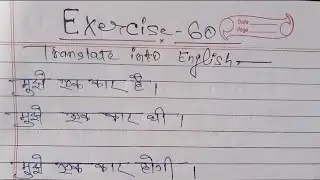 Exercise - 60
Date
Page
Translate into English.
मुझे एक कार है ।
मुझे एक कार थी ।
मुझे एक कार होगी ।